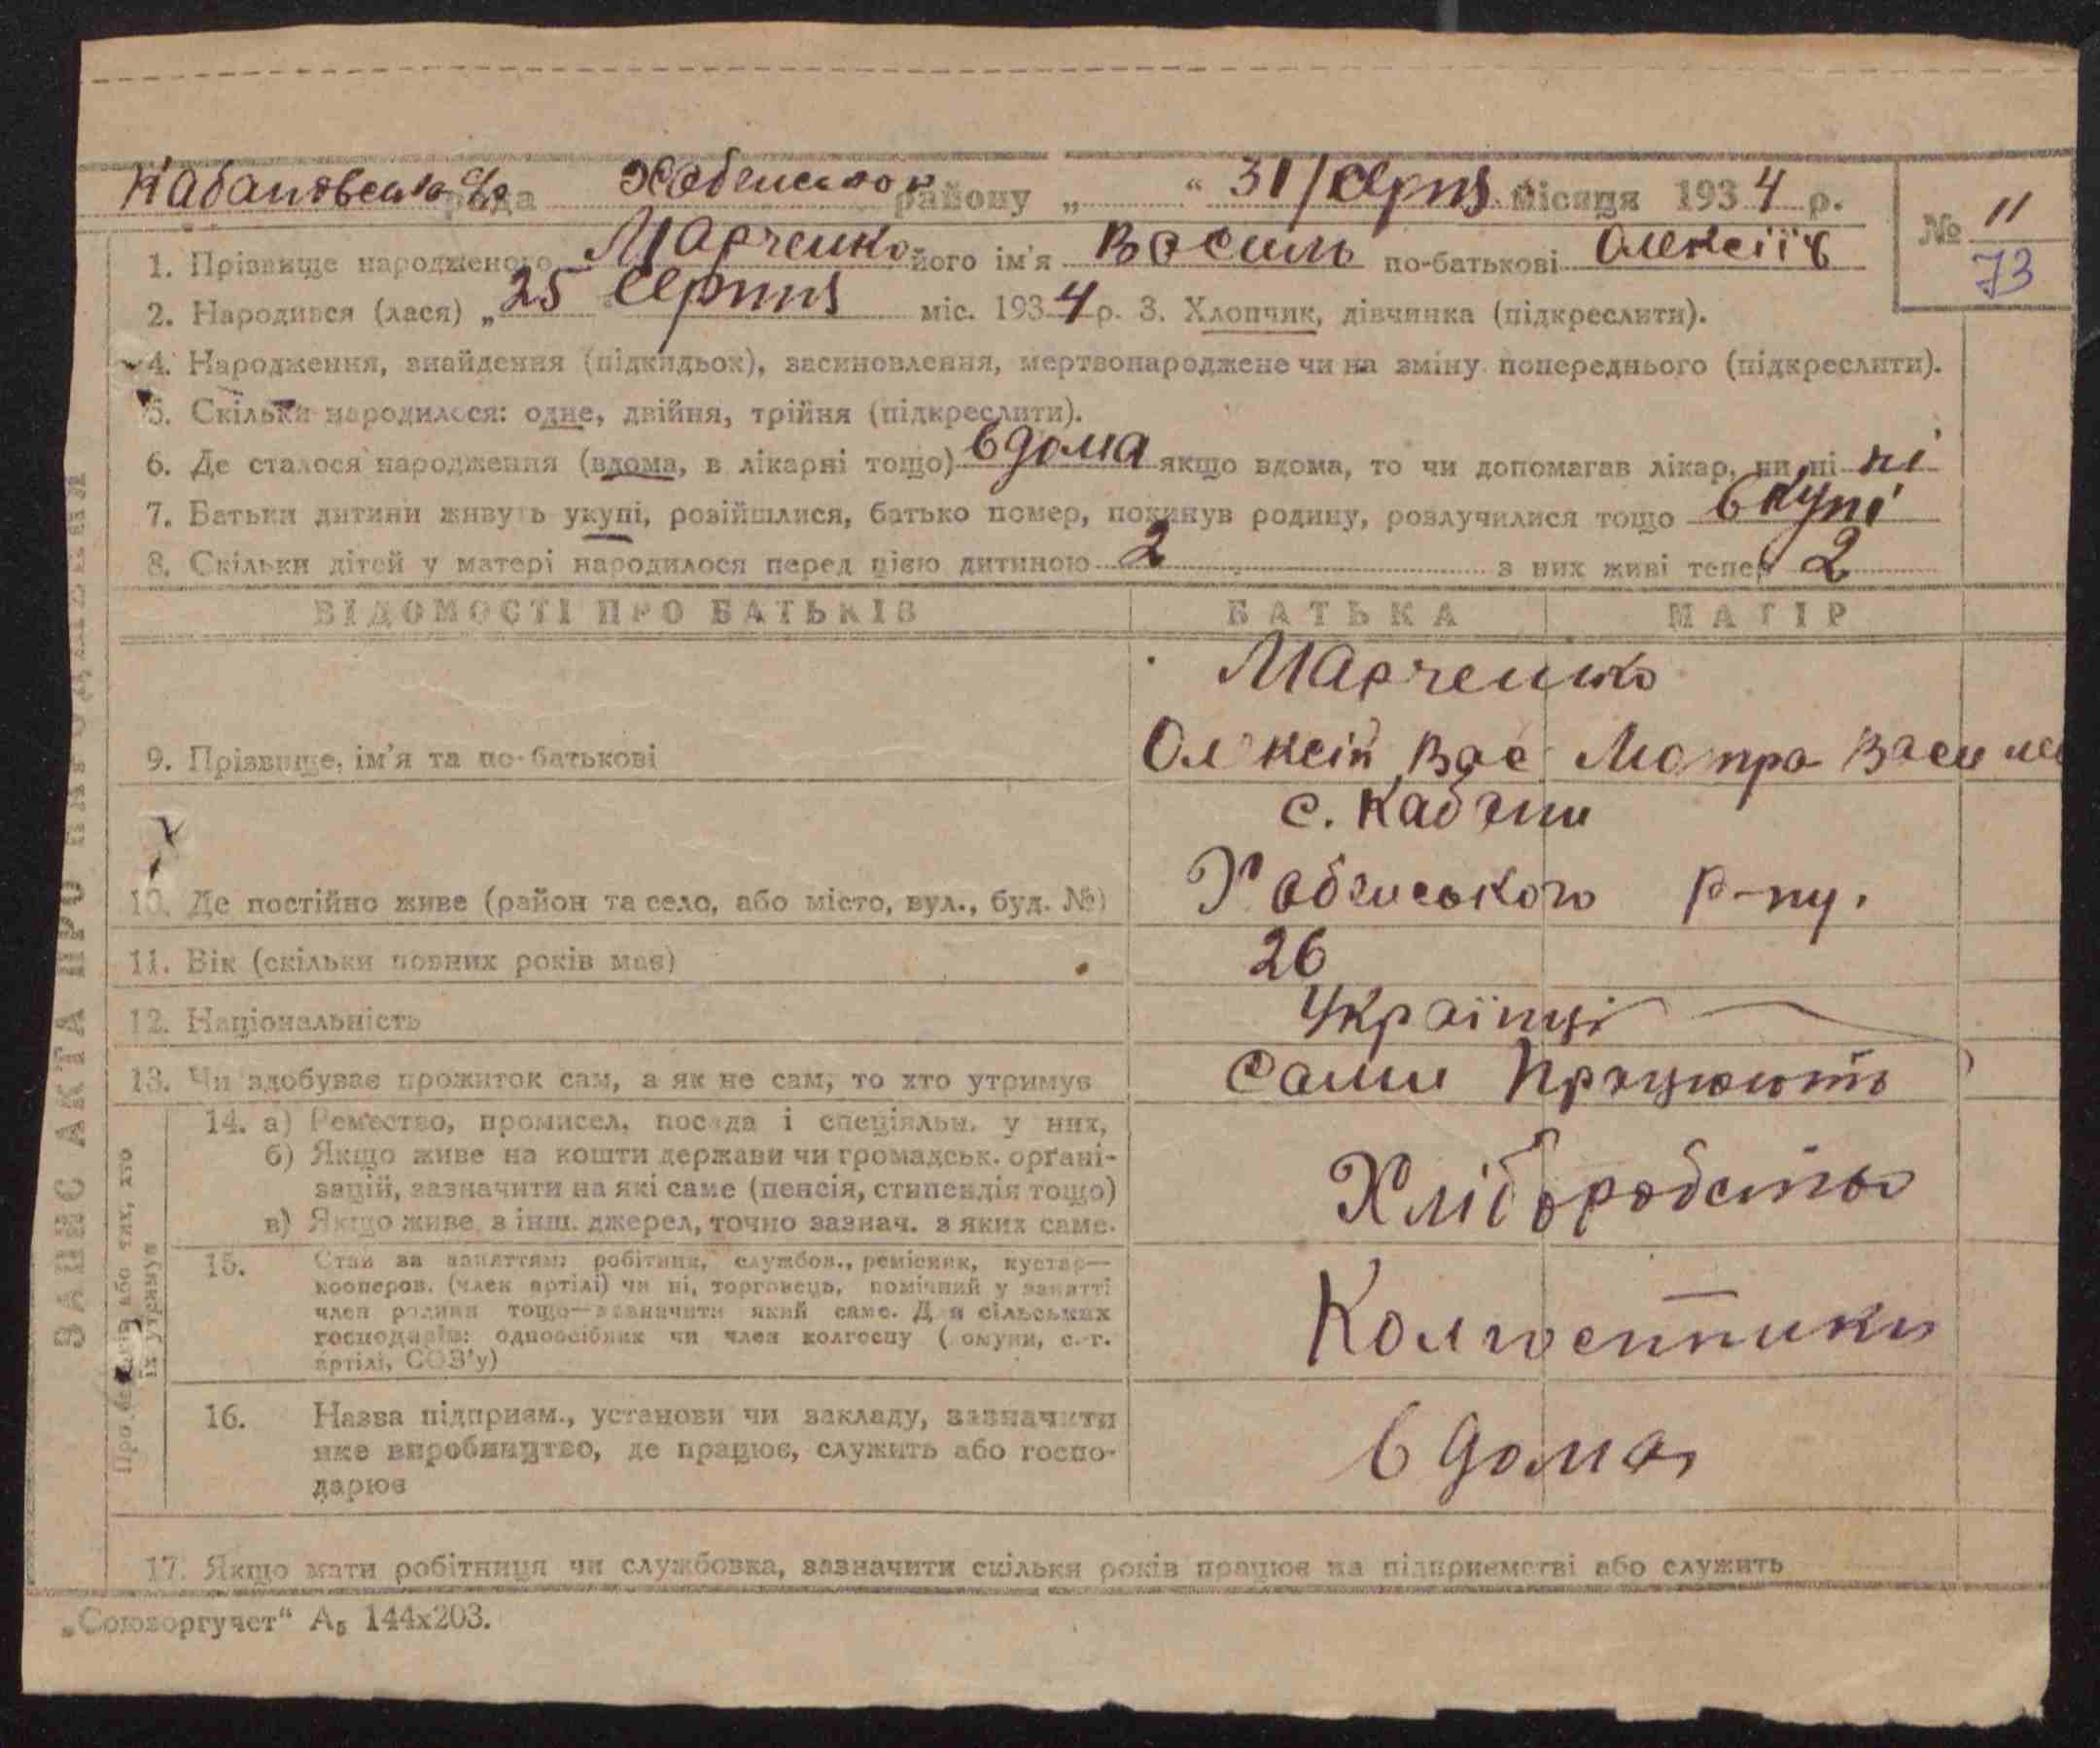 Кабановська с/р рада Хабенськ району „ “ 31/серпня місяця 1934 р.
№ 11
73
1. Прізвище народженого Марченко його ім'я Василь по-батькові Олексіїв
2. Народився (лася) „25 серпня міс. 1934 р. 3. Хлопчик, дівчинка (підкреслити).
4. Народження, знайдення (підкидьок), засиновлення, мертвонароджене чи на зміну попереднього (підкреслити).
5. Скільки народилося: одне, двійня, трійня (підкреслити).
6. Де сталося народження (вдома, в лікарні тощо) вдома якщо вдома, то чи допомагав лікар, чи ні ні
7. Батьки дитини живуть укупі, розійшлися, батько помер, покинув родину, розлучилися тощо вкупі
8. Скільки дітей у матері народилося перед цією дитиною 2 з них живі тепер 2
ЗАПИС АКТА ПРО НАРОДЖЕННЯ
ВІДОМОСТІ ПРО БАТЬКІВ БАТЬКА МАТІР
Марченко
9. Прізвище, ім'я та по-батькові Олексій Вас Мотря Васи
с. Кабани
10. Де постійно живе (район та село, або місто, вул., буд. №) Хабенського р-ну.
11. Вік (скільки повних років має) 26
12. Національність Українці
13. Чи здобуває прожиток сам, а як не сам, то хто утримує Сами працюють
14. а) Ремество, промисел, посада і спеціяльн. у них,
б) Якщо живе на кошти держави чи громадськ. органі-
зацій, зазначити на які саме (пенсія, стипендія тощо)
в) Якщо живе з інш. джерел, точно зазнач. з яких саме.
Хліборобство
15. Стан за заняттям: робітник, службов., ремісник, кустар—
кооперов. (член артілі) чи ні, торговець, помічний у занятті
член родини тощо—зазначити який саме. Для сільських
господарів: одноосібник чи член колгоспу ( омуни, с.-г.
артілі, СОЗ'у)
Колгоспники
16. Назва підприєм., установи чи закладу, зазначити
яке виробництво, де працює, служить або госпо-
дарює
вдома
17. Якщо мати робітниця чи службовка, зазначити скільки років працює на підприємстві або служить
„Союзоргучет“ А₅ 144х203.